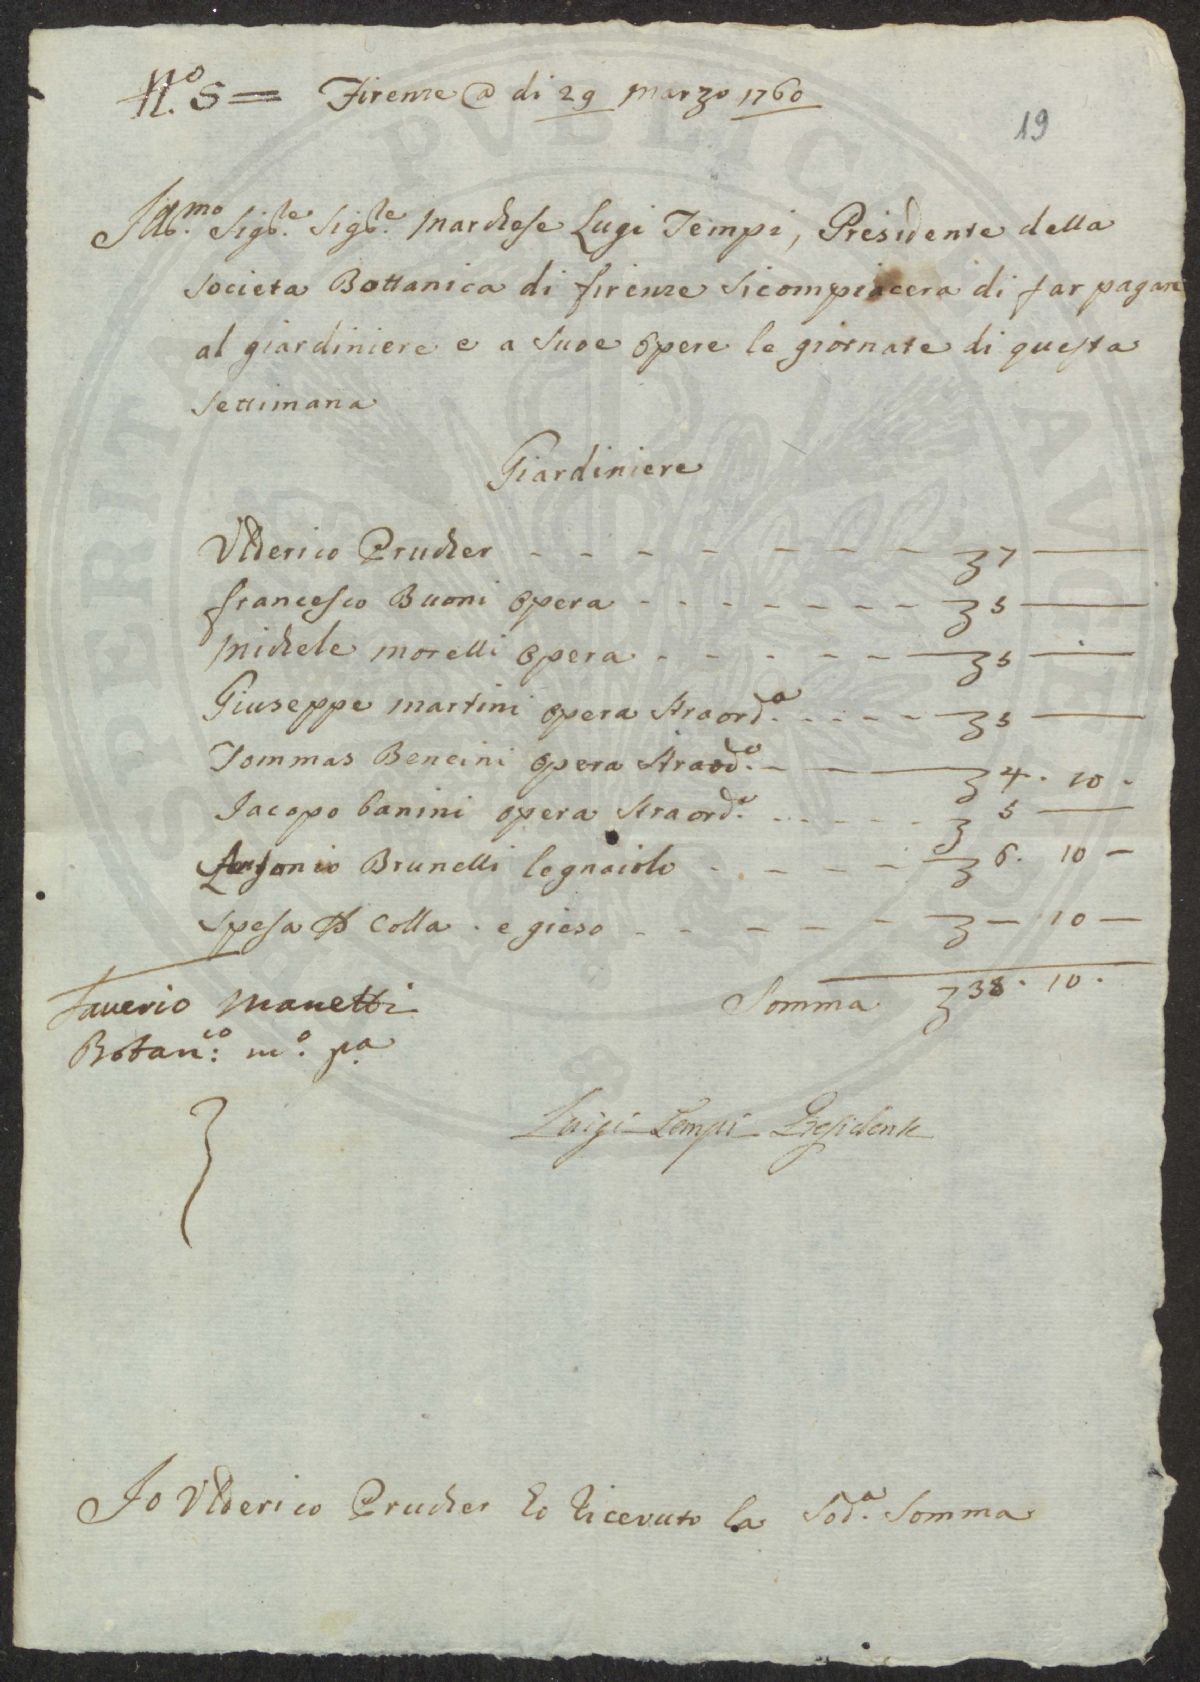 N.º 5 = Firenze @ di 29 Marzo 1760
19
Ill.mo Sig.re Sig.re Marchese Lugi Tempi, Presidente della
Societa Bottanica di firenze sicompiacera di far pagare
al giardiniere e a suoe opere le giornate di questa
settimana
Giardiniere
Ulderico Prucher - - - - - - - - 7 —
francesco Buoni opera - - - - - - - 5 —
Michele morelli opera - - - - - 5 —
Giuseppe martini opera straord.ª - - - - - 5 —
Tommas Bencini opera straod.ª - - 4 . 10 -
Jacopo Banini opera straord.ª - - - - - - 5 —
Antonio Brunelli legnaiolo - - - - - 6 . 10 -
Spesa di Colla . e gieso - - - - - - — 10 —
Somma 38 . 10 .
Saverio Manetti
Botan.co m.º p.a
Luigi Tempi Presidente
Io Ulderico Prucher ho ricevuto la Sod.ª Somma
PVBLICAE